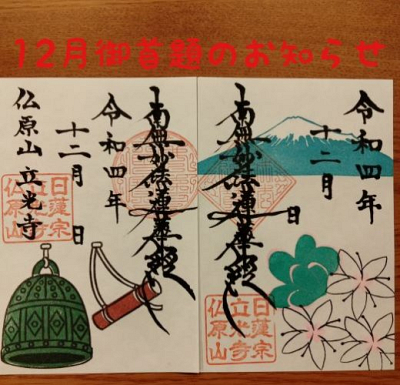 12月御首題のお知らせ
令和四年
十二月 日
南無妙法蓮華経
日蓮宗
立光寺
仏原山
令和四年
十二月 日
南無妙法蓮華経
仏原山立光寺
日蓮宗
立光寺
仏原山